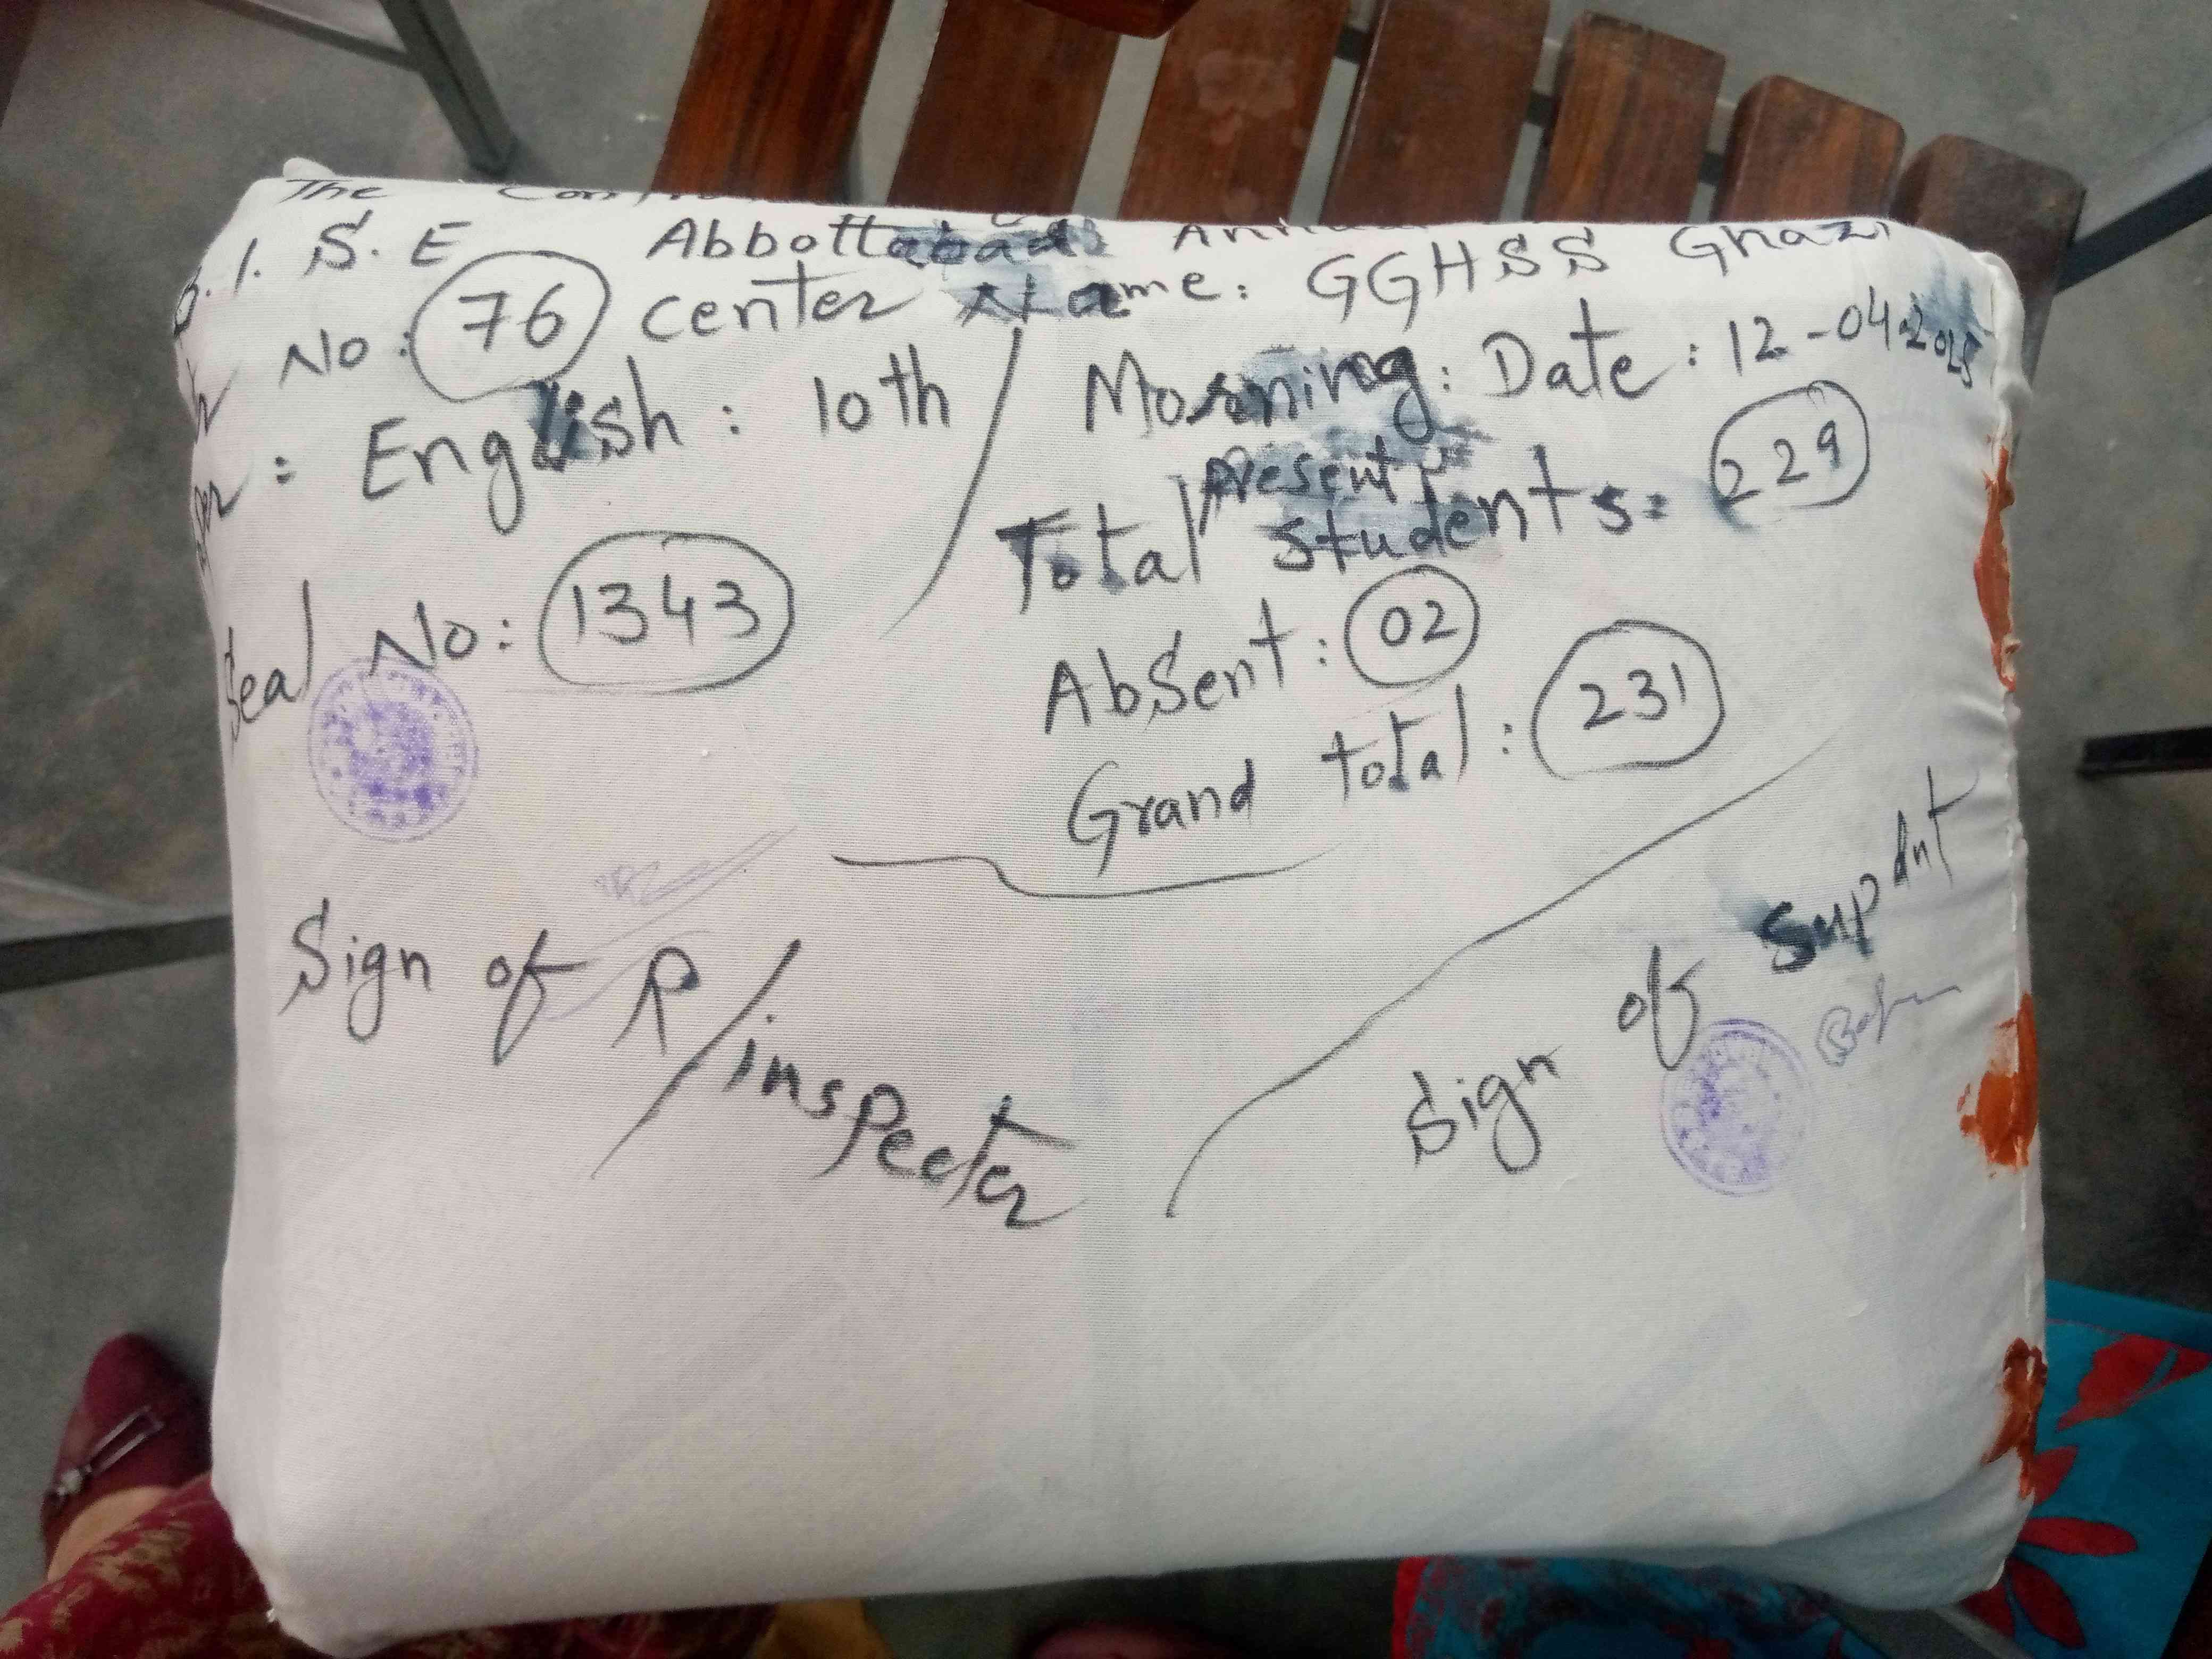 The
B.I.S.E Abbottabad
No: 76 center Name: GGHSS Ghazi
: English: 10th / Morning: Date: 12-04-2025
Total present students: 229
Seal No: 1343
Absent: 02
Grand total: 231
Sign of R/inspecter
Sign of Supdnt